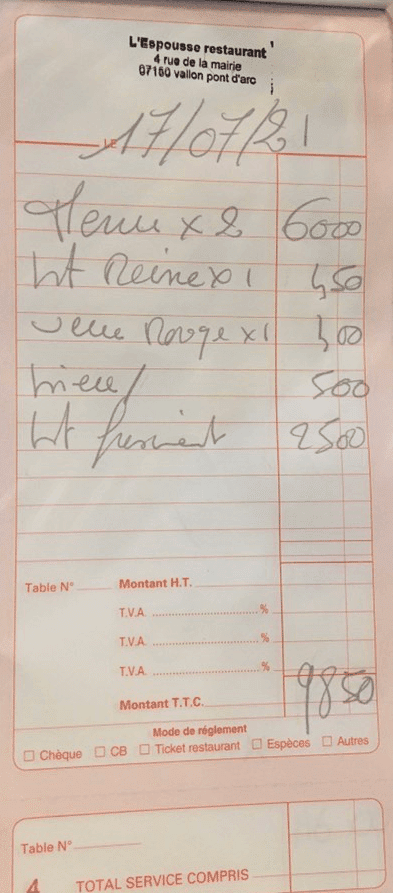 L'Espousse restaurant
4 rue de la mairie
07150 vallon pont d'arc
LE 17/07/21
Menu x 2 6000
Bt Reine x 1 450
Verre Rouge x 1 400
500
Bt 2500
Table N° Montant H.T.
T.V.A. %
T.V.A. %
T.V.A. %
Montant T.T.C. 9850
Mode de réglement
Chèque CB Ticket restaurant Espèces Autres
Table N°
4 TOTAL SERVICE COMPRIS